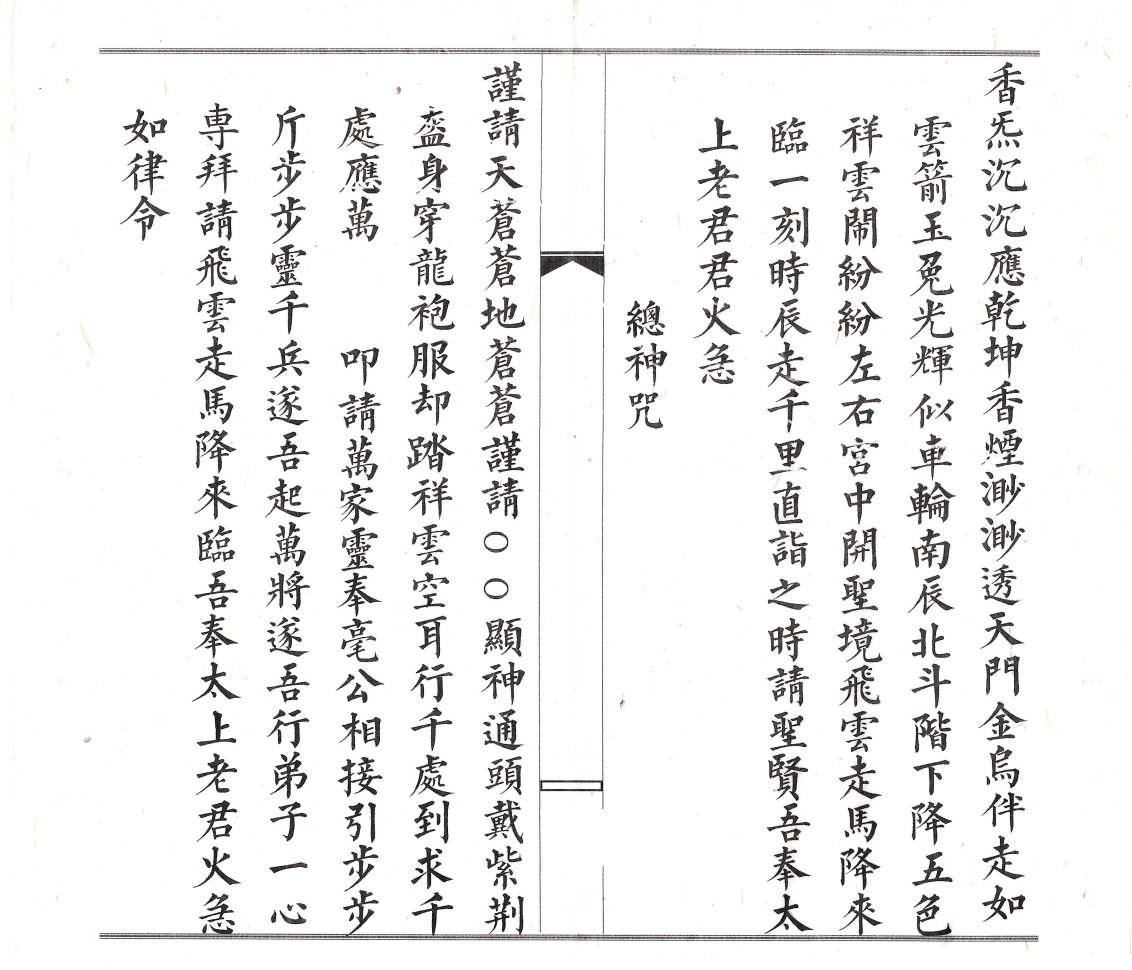 香炁沉沉應乾坤香煙渺渺透天門金烏伴走如
雲箭玉兎光輝似車輪南辰北斗階下降五色
祥雲鬧紛紛左右宮中開聖境飛雲走馬降來
臨一刻時辰走千里直詣之時請聖賢吾奉太
上老君君火急
總神咒
謹請天蒼蒼地蒼蒼謹請○○顯神通頭戴紫荆
盔身穿龍袍服却踏祥雲空耳行千處到求千
處應萬　　叩請萬家靈奉毫公相接引步步
斤步步靈千兵遂吾起萬將遂吾行弟子一心
専拜請飛雲走馬降來臨吾奉太上老君火急
如律令